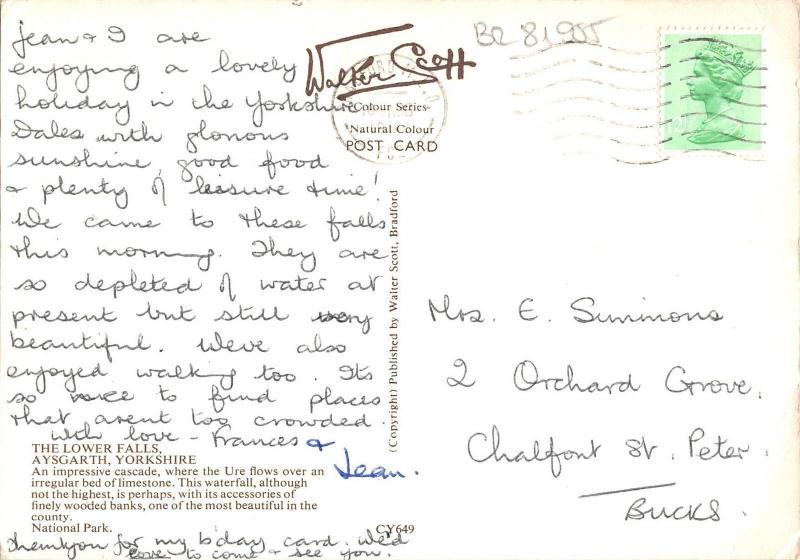 Jean & I are
enjoying a lovely
holiday in the Yorkshire
Dales with glorious
sunshine, good food
& plenty of leisure time!
We came to these falls
this morning. They are
so depleted of water at
present but still very
beautiful. Weve also
enjoyed walking too. Its
so nice to find places
that arent too crowded.
with love - Frances &
Jean.
THE LOWER FALLS,
AYSGARTH, YORKSHIRE
An impressive cascade, where the Ure flows over an
irregular bed of limestone. This waterfall, although
not the highest, is perhaps, with its accessories of
finely wooded banks, one of the most beautiful in the
county.
National Park.
CY649
Thankyou for my b'day card. We'd
love to come & see you.
Walter Scott
Colour Series
Natural Colour
POST CARD
(Copyright) Published by Walter Scott, Bradford
BR 81905
Mrs. E. Simmons
2 Orchard Grove.
Chalfont St. Peter.
BUCKS.